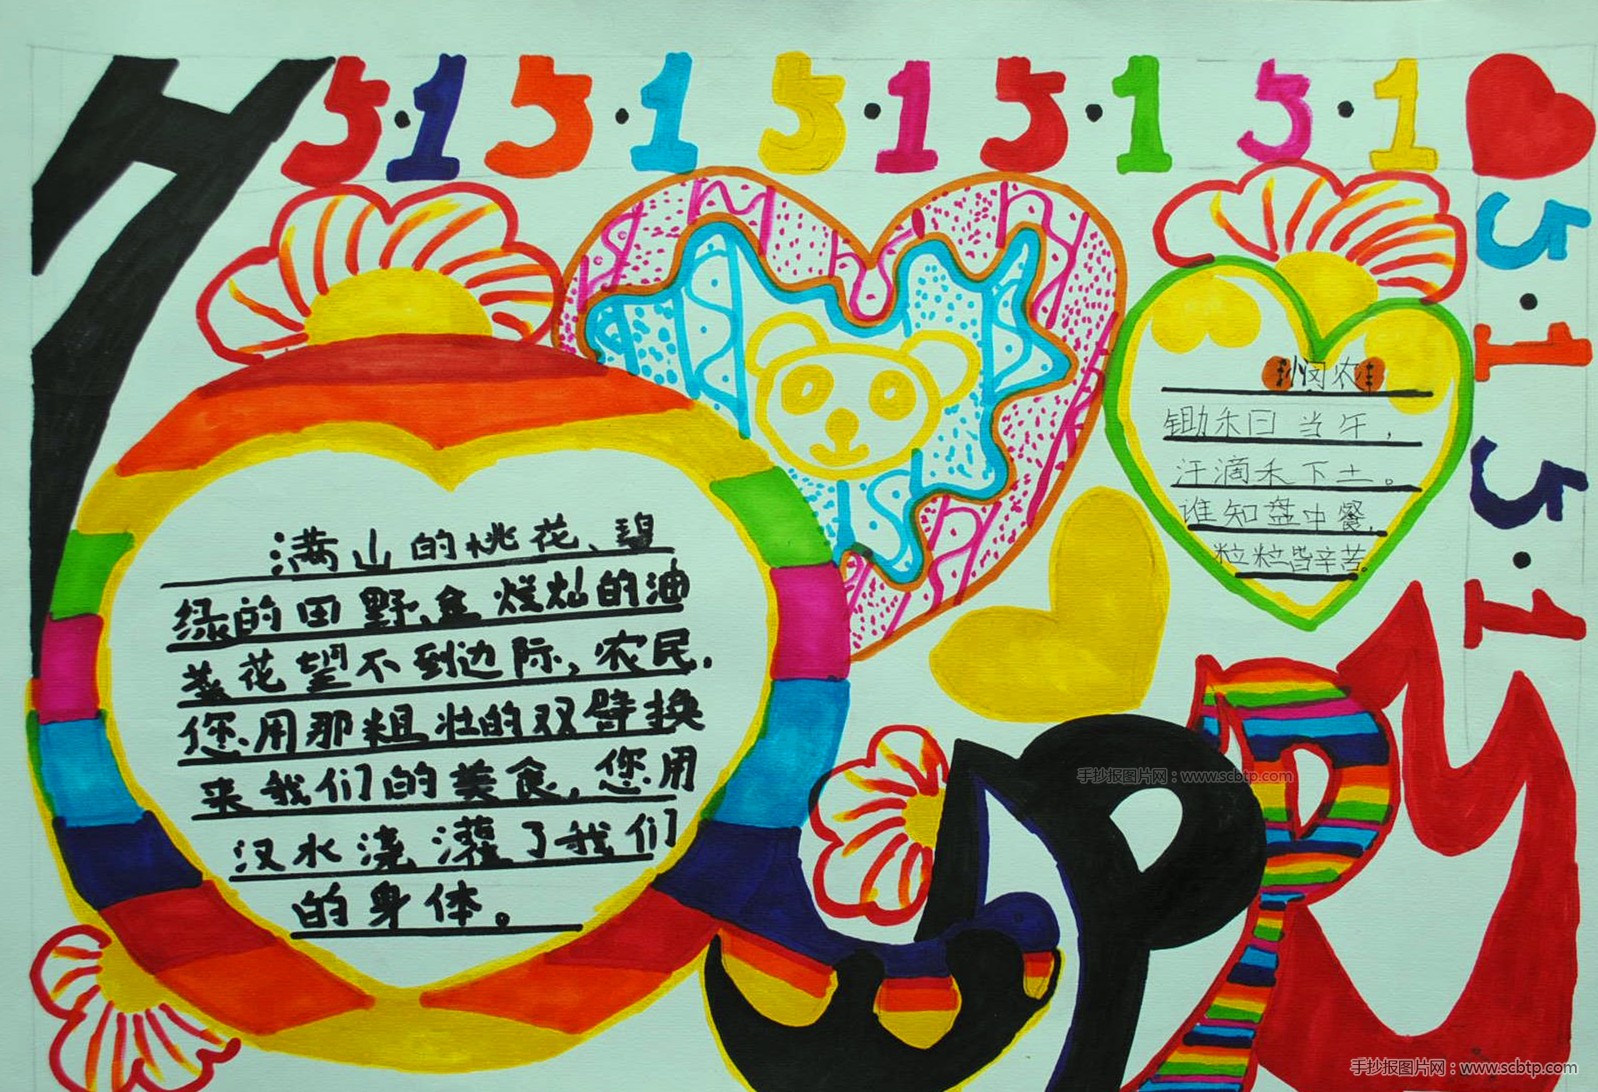 5·1 5·1 5·1 5·1 5·1
5·1
5·1
满山的桃花、碧
绿的田野、金烂灿的油
菜花望不到边际,农民,
您用那粗壮的双臂换
来我们的美食,您用
汉水浇灌了我们
的身体。
悯农
锄禾日当午,
汗滴禾下土。
谁知盘中餐,
粒粒皆辛苦。
手抄报图片网:www.scbtp.com
手抄报图片网:www.scbtp.com